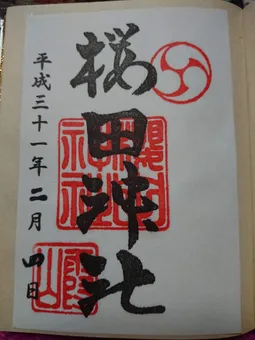 櫻田神社
平成三十一年二月四日